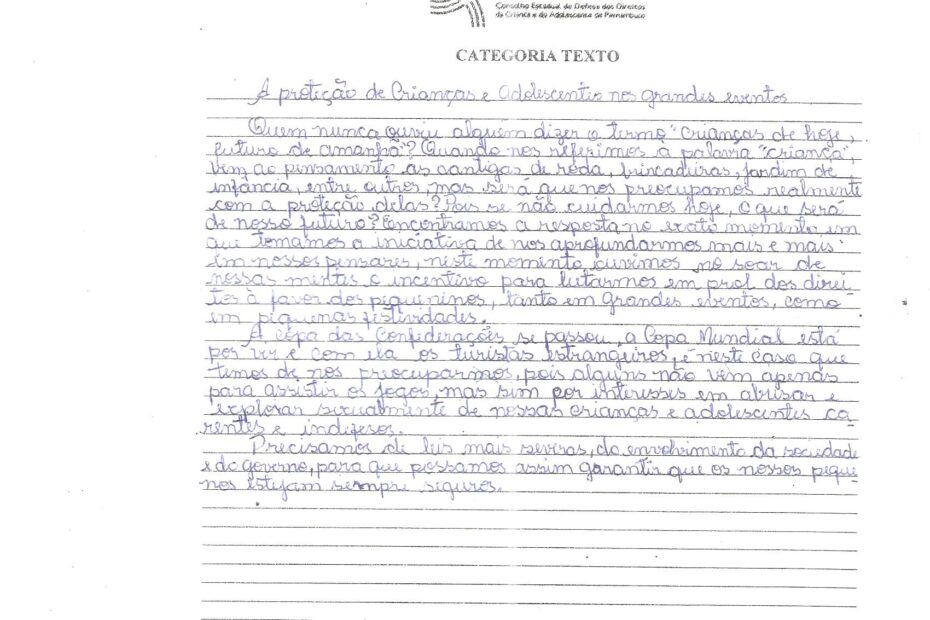 Conselho Estadual de Defesa dos Direitos
da Criança e do Adolescente de Pernambuco
CATEGORIA TEXTO
A proteção de Crianças e Adolescentes nos grandes eventos
Quem nunca ouviu alguém dizer o termo "crianças de hoje,
futuro de amanhã"? Quando nos referimos à palavra "criança",
vem ao pensamento as cantigas de roda, brincaduras, jardim de
infância, entre outros, mas será que nos preocupamos realmente
com a proteção delas? Pois se não cuidarmos hoje, o que será
de nosso futuro? Encontramos a resposta no exato momento em
que tomamos a iniciativa de nos aprofundarmos mais e mais
em nossos pensares, neste momento ouvimos no soar de
nossas mentes o incentivo para lutarmos em prol dos direi-
tos à favor dos pequeninos, tanto em grandes eventos, como
em pequenas festividades.
A copa das Confederações se passou, a Copa Mundial está
por vir e com ela os turistas estrangeiros, é neste caso que
temos de nos preocuparmos, pois alguns não vem apenas
para assistir os jogos, mas sim por interesses em abusar e
explorar sexualmente de nossas crianças e adolescentes ca-
rentes e indefesos.
Precisamos de leis mais severas, do envolvimento da sociedade
e do governo, para que possamos assim garantir que os nossos peque-
nos estejam sempre seguros.